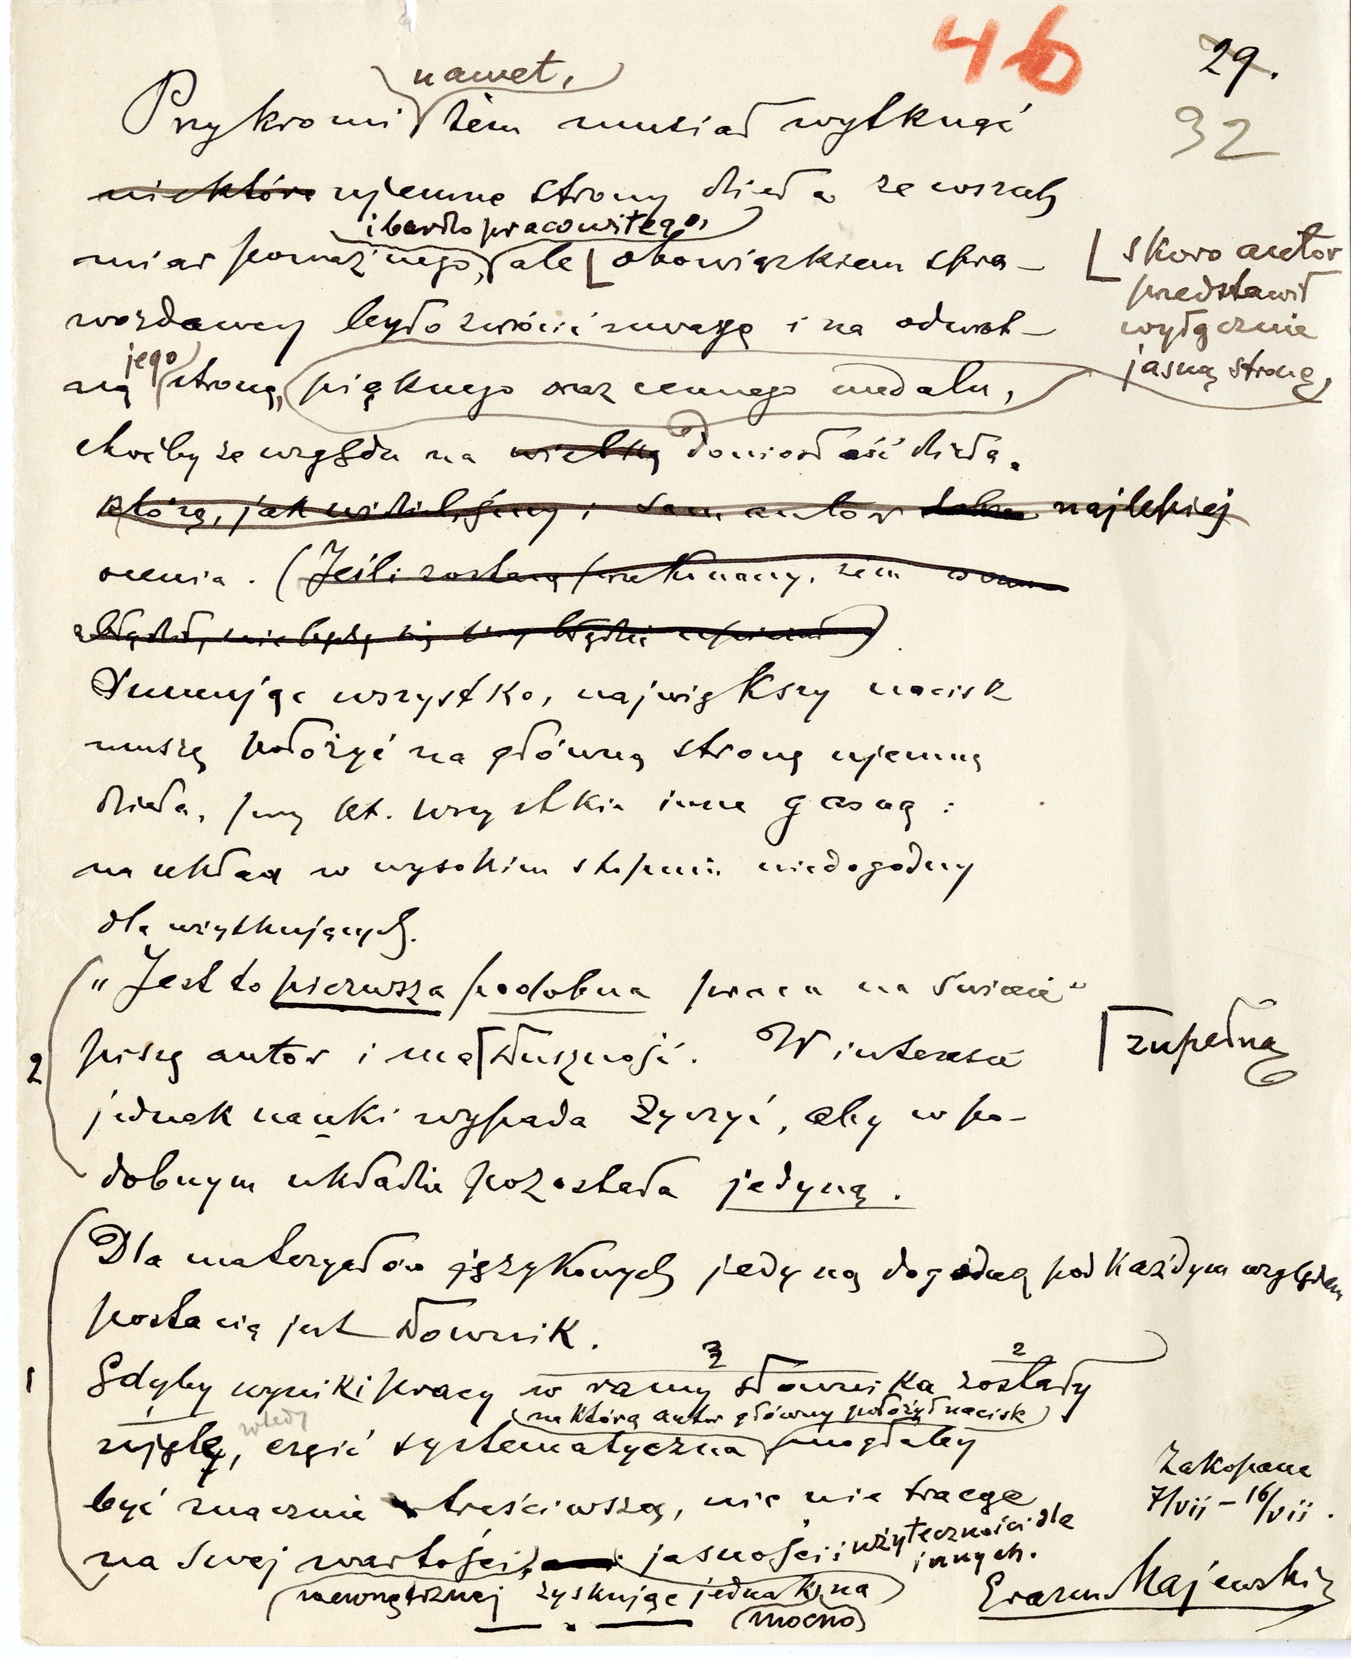 46
29.
32
nawet,
Przykro mi żem musiał wytknąć
niektóre ujemne strony dzieła ze wszech
i bardzo pracowitego,
miar pomnego, ale [ obowiązkiem spra-
[ skoro autor
przedstawił
wyłącznie
jasną stronę,
wozdawcy było zwrócić uwagę i na odwrot-
jego
ną stronę, pięknego oraz cennego medalu,
choćby ze względu na wielką doniosłość dzieła.
którą, jak widzieliśmy i sam autor najlepiej
ocenia. (Jeśli zostanę przekonany, żem
Sumując wszystko, największy nacisk
muszę położyć na główną stronę ujemną
dzieła, przy kt. wszystkie inne gasną:
na układ w wysokim stopniu niedogodny
dla użytkujących.
„Jest to pierwsza podobna praca na świecie"
2 pisze autor i ma [ słuszność. W interesie
[ zupełną
jednak nauki wypada życzyć, aby w po-
dobnym układzie pozostała jedyną.
Dla materyałów językowych jedyną dogodną pod każdym względem
postacią jest słownik.
3 2
1 Gdyby wyniki pracy w ramy słownika zostały
(na którą autor główny położył nacisk)
wtedy
ujęte, część systematyczna mogłaby
być znacznie treściwszą, nic nie tracąc
na swej wartości, jasności i użyteczności dla
innych.
wewnętrznej zyskując jednak na
mocno
Zakopane
7/VII – 16/VII.
Erazm Majewski